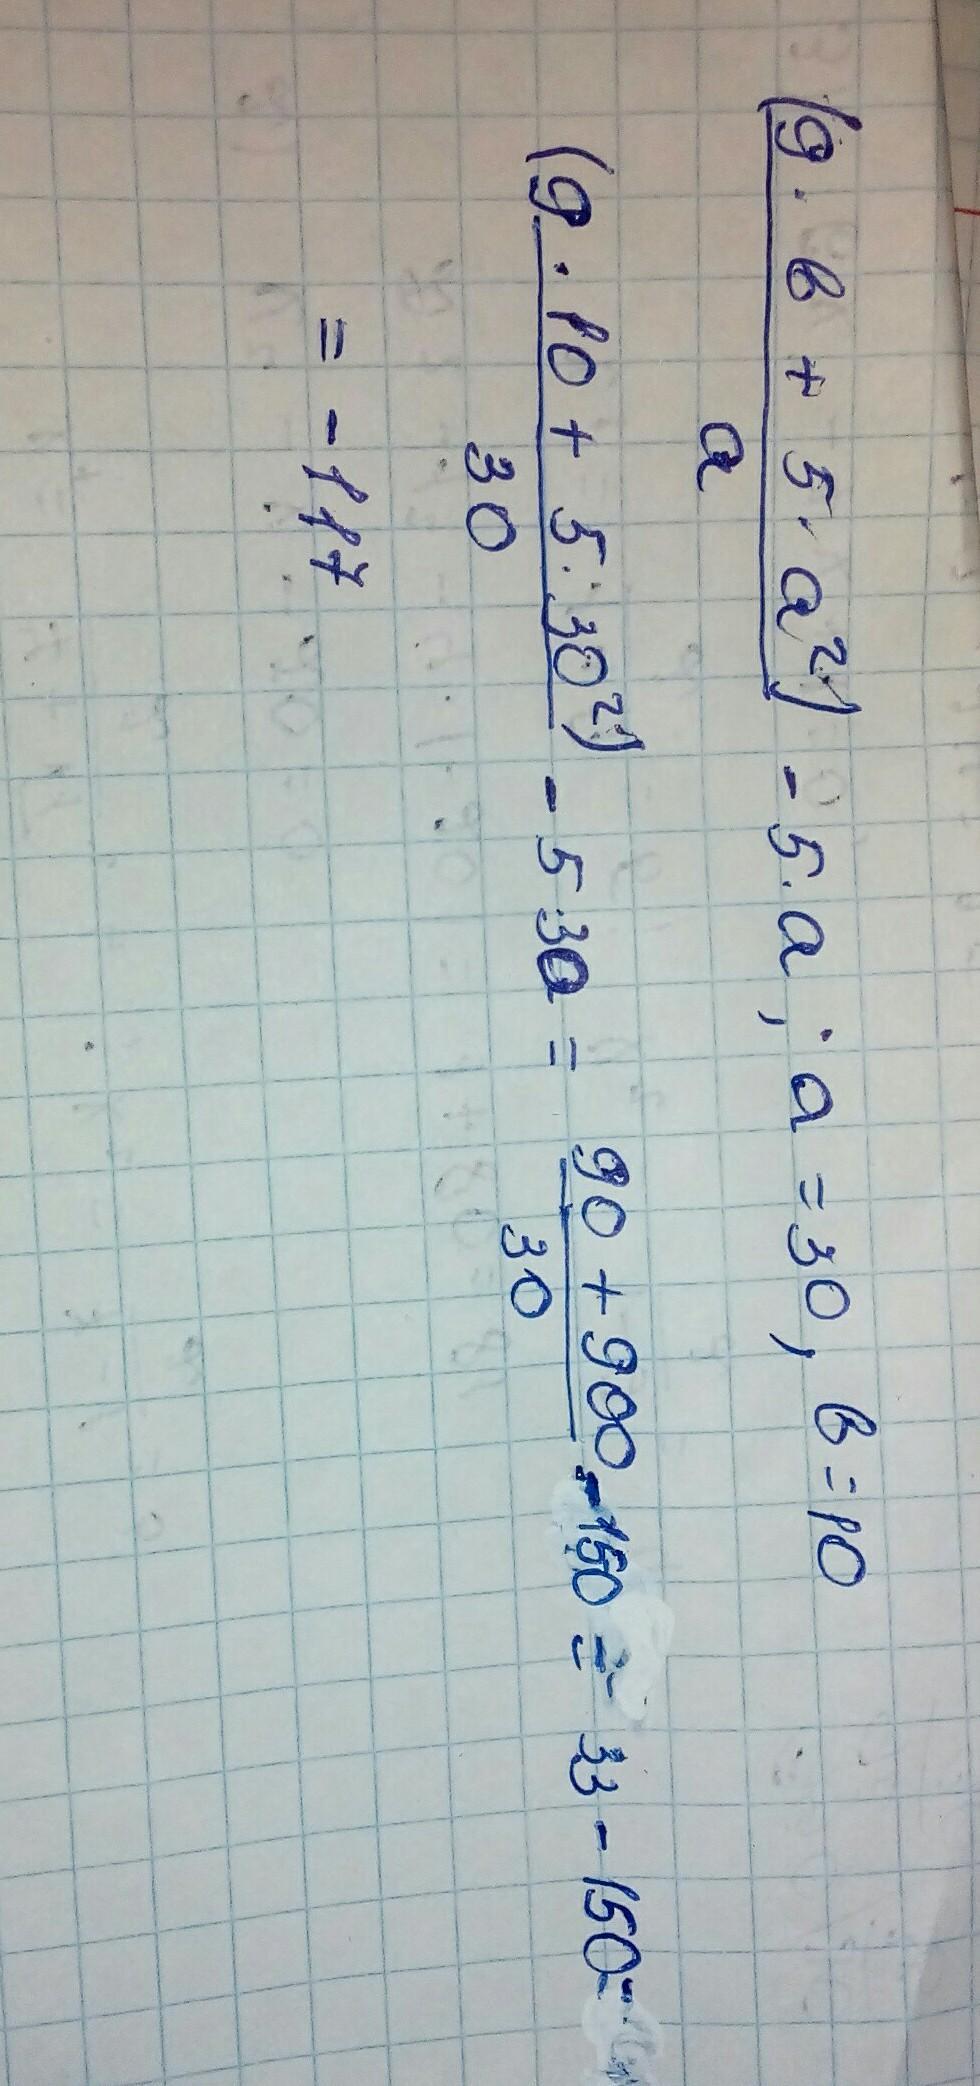 (9 · b + 5 · a²) / a - 5 · a ; a = 30, b = 10
(9 · 10 + 5 · 30²) / 30 - 5 · 30 = 90 + 900 / 30 - 150 = 33 - 150 =
= - 117